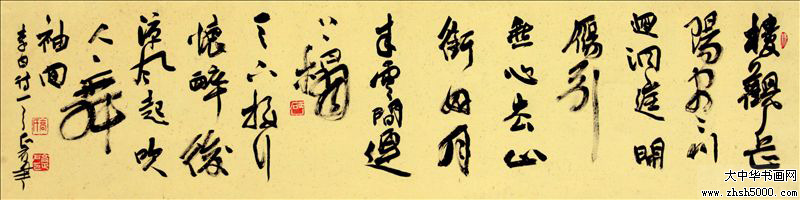 樓觀岳
陽盡川
迴洞庭開
雁引
愁心去山
銜好月
来雲間連
下榻
天上接行
懷醉後
涼風起吹
人舞
袖回
李白詩一首
大中华书画网
www.zhsh5000.com